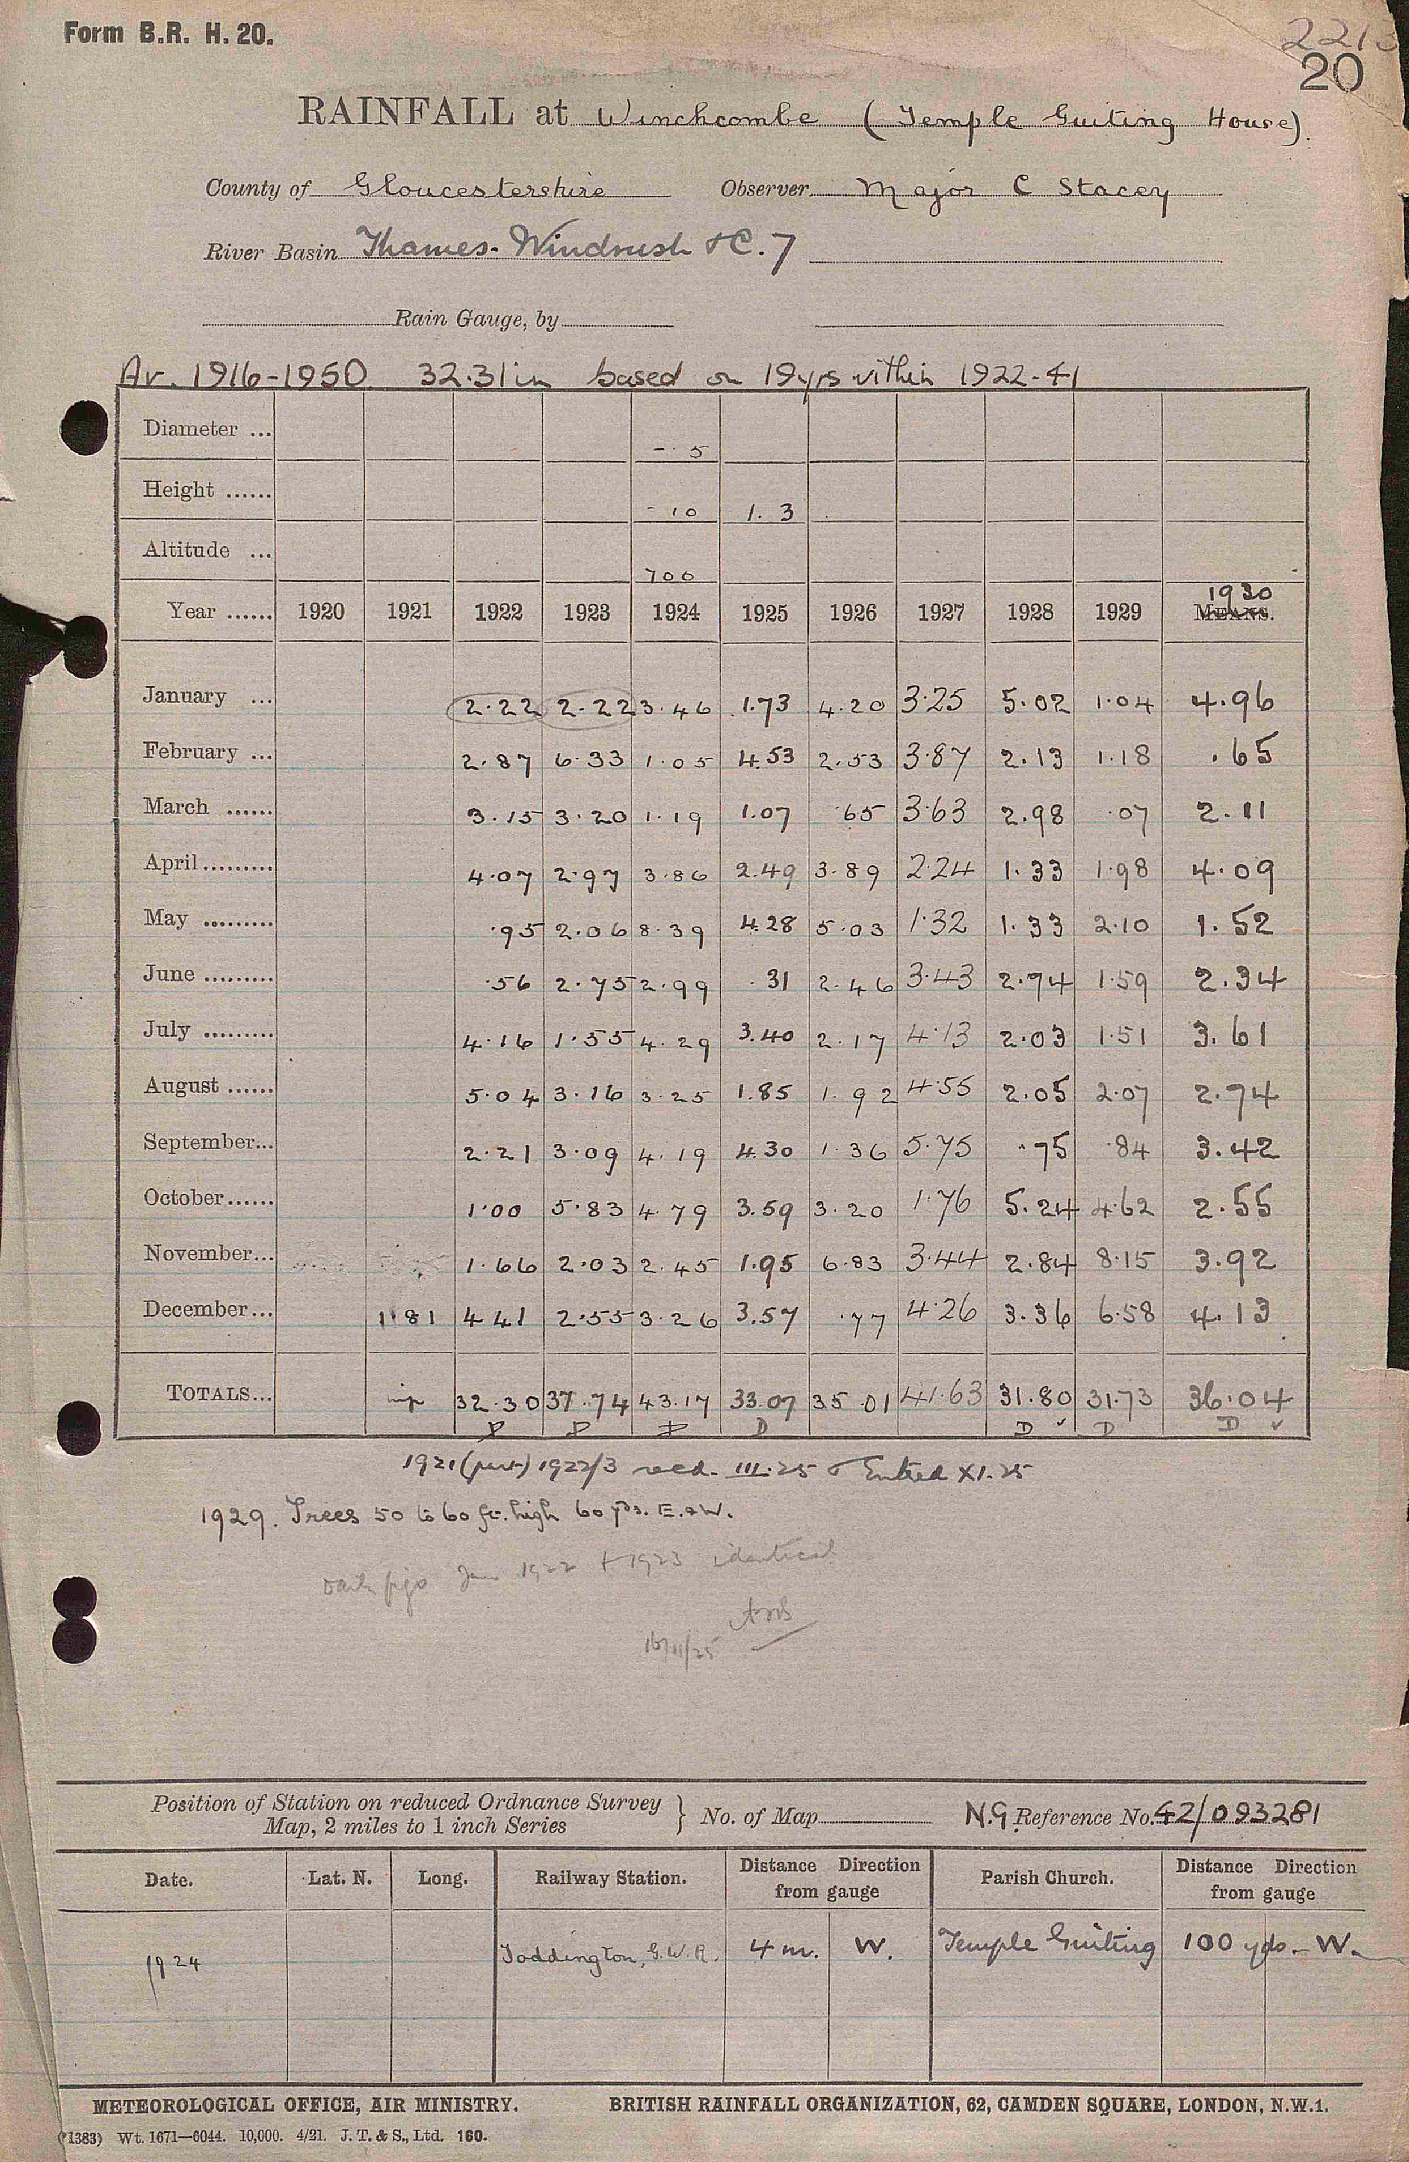 Form B.R. H. 20.
2213
20
RAINFALL at Winchcombe (Temple Guiting House).
County of Gloucestershire Observer Major C Stacey
River Basin Thames-Windrush &C. 7
Rain Gauge, by
Av. 1916-1950 32.31in based on 19yrs within 1922-41
Diameter ... - 5
Height ...... - 10 1. 3
Altitude ... 700
1930
Year ...... 1920 1921 1922 1923 1924 1925 1926 1927 1928 1929 MEANS.
January ... 2.22 2.22 3.46 1.73 4.20 3.25 5.02 1.04 4.96
February ... 2.87 6.33 1.05 4.53 2.53 3.87 2.13 1.18 .65
March ...... 3.15 3.20 1.19 1.07 .65 3.63 2.98 .07 2.11
April ......... 4.07 2.97 3.86 2.49 3.89 2.24 1.33 1.98 4.09
May ......... .95 2.06 8.39 4.28 5.03 1.32 1.33 2.10 1.52
June ......... .56 2.75 2.99 .31 2.46 3.43 2.74 1.59 2.34
July ......... 4.16 1.55 4.29 3.40 2.17 4.13 2.03 1.51 3.61
August ...... 5.04 3.16 3.25 1.85 1.92 4.55 2.05 2.07 2.74
September... 2.21 3.09 4.19 4.30 1.36 5.75 .75 .84 3.42
October...... 1.00 5.83 4.79 3.59 3.20 1.76 5.24 4.62 2.55
November... 1.66 2.03 2.45 1.95 6.83 3.44 2.84 8.15 3.92
December... 1.81 4.41 2.55 3.26 3.57 .77 4.26 3.36 6.58 4.13
TOTALS... 32.30 37.74 43.17 33.07 35.01 41.63 31.80 31.73 36.04
D D D D D D D
1921 (part) 1922/3 recd. III.25 & Entred XI.25
1929. Trees 50 to 60 ft. high 60 yds. E. & W.
Daily figs Jan 1922 & 1923 identical
16/11/25
Position of Station on reduced Ordnance Survey
Map, 2 miles to 1 inch Series } No. of Map N.G Reference No. 42/093281
Date. Lat. N. Long. Railway Station. Distance Direction from gauge Parish Church. Distance Direction from gauge
1924 Toddington, G.W.R. 4 m. W. Temple Guiting 100 yds. W.
METEOROLOGICAL OFFICE, AIR MINISTRY. BRITISH RAINFALL ORGANIZATION, 62, CAMDEN SQUARE, LONDON, N.W.1.
(*1383) Wt. 1671—6044. 10,000. 4/21. J. T. & S., Ltd. 160.